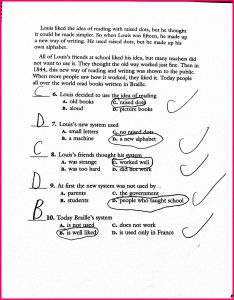 Louis liked the idea of reading with raised dots, but he thought
it could be made simpler. So when Louis was fifteen, he made up
a new way of writing. He used raised dots, but he made up his
own alphabet.
All of Louis's friends at school liked his idea, but many teachers did
not want to use it. They thought the old way worked just fine. Then in
1844, this new way of reading and writing was shown to the public.
When more people saw how it worked, they liked it. Today people
all over the world read books written in Braille.
C 6. Louis decided to use the idea of reading
A. old books C. raised dots
B. aloud D. picture books
D 7. Louis's new system used
A. small letters C. no raised dots
B. a machine D. a new alphabet
C 8. Louis's friends thought his system
A. was strange C. worked well
B. was too hard D. did not work
D 9. At first the new system was not used by
A. parents C. the government
B. students D. people who taught school
B 10. Today Braille's system
A. is not used C. does not work
B. is well liked D. is used only in France